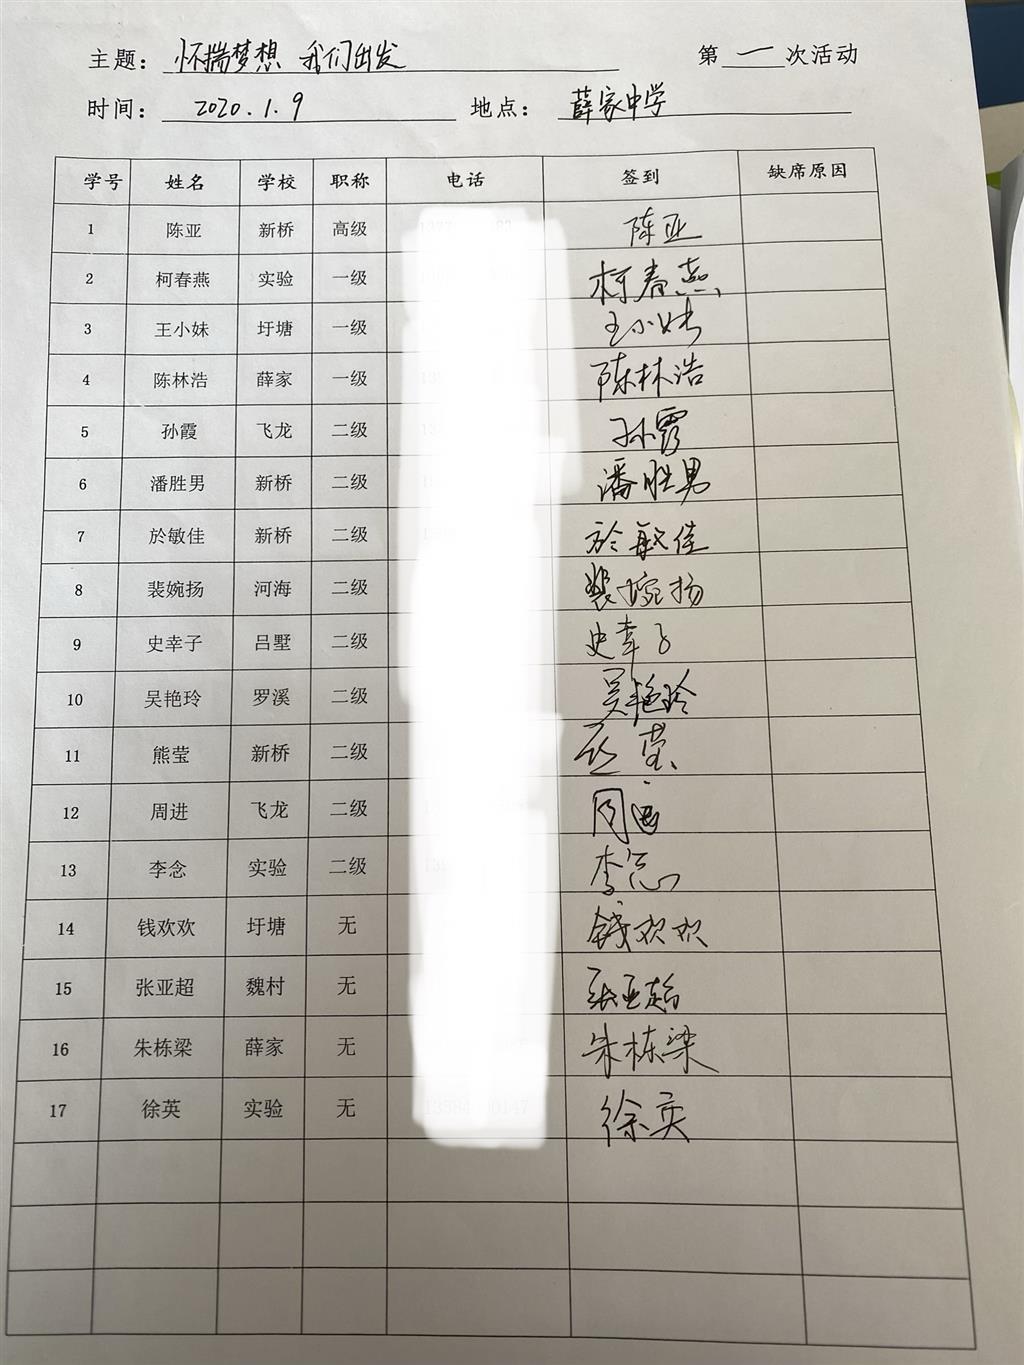 主题：怀揣梦想 我们出发 第一次活动
时间：2020.1.9 地点：薛家中学
学号 姓名 学校 职称 电话 签到 缺席原因
1 陈亚 新桥 高级 陈亚
2 柯春燕 实验 一级 柯春燕
3 王小妹 圩塘 一级 王小妹
4 陈林浩 薛家 一级 陈林浩
5 孙霞 飞龙 二级 孙霞
6 潘胜男 新桥 二级 潘胜男
7 於敏佳 新桥 二级 於敏佳
8 裴婉扬 河海 二级 裴婉扬
9 史幸子 吕墅 二级 史幸子
10 吴艳玲 罗溪 二级 吴艳玲
11 熊莹 新桥 二级 熊莹
12 周进 飞龙 二级 周进
13 李念 实验 二级 李念
14 钱欢欢 圩塘 无 钱欢欢
15 张亚超 魏村 无 张亚超
16 朱栋梁 薛家 无 朱栋梁
17 徐英 实验 无 徐英